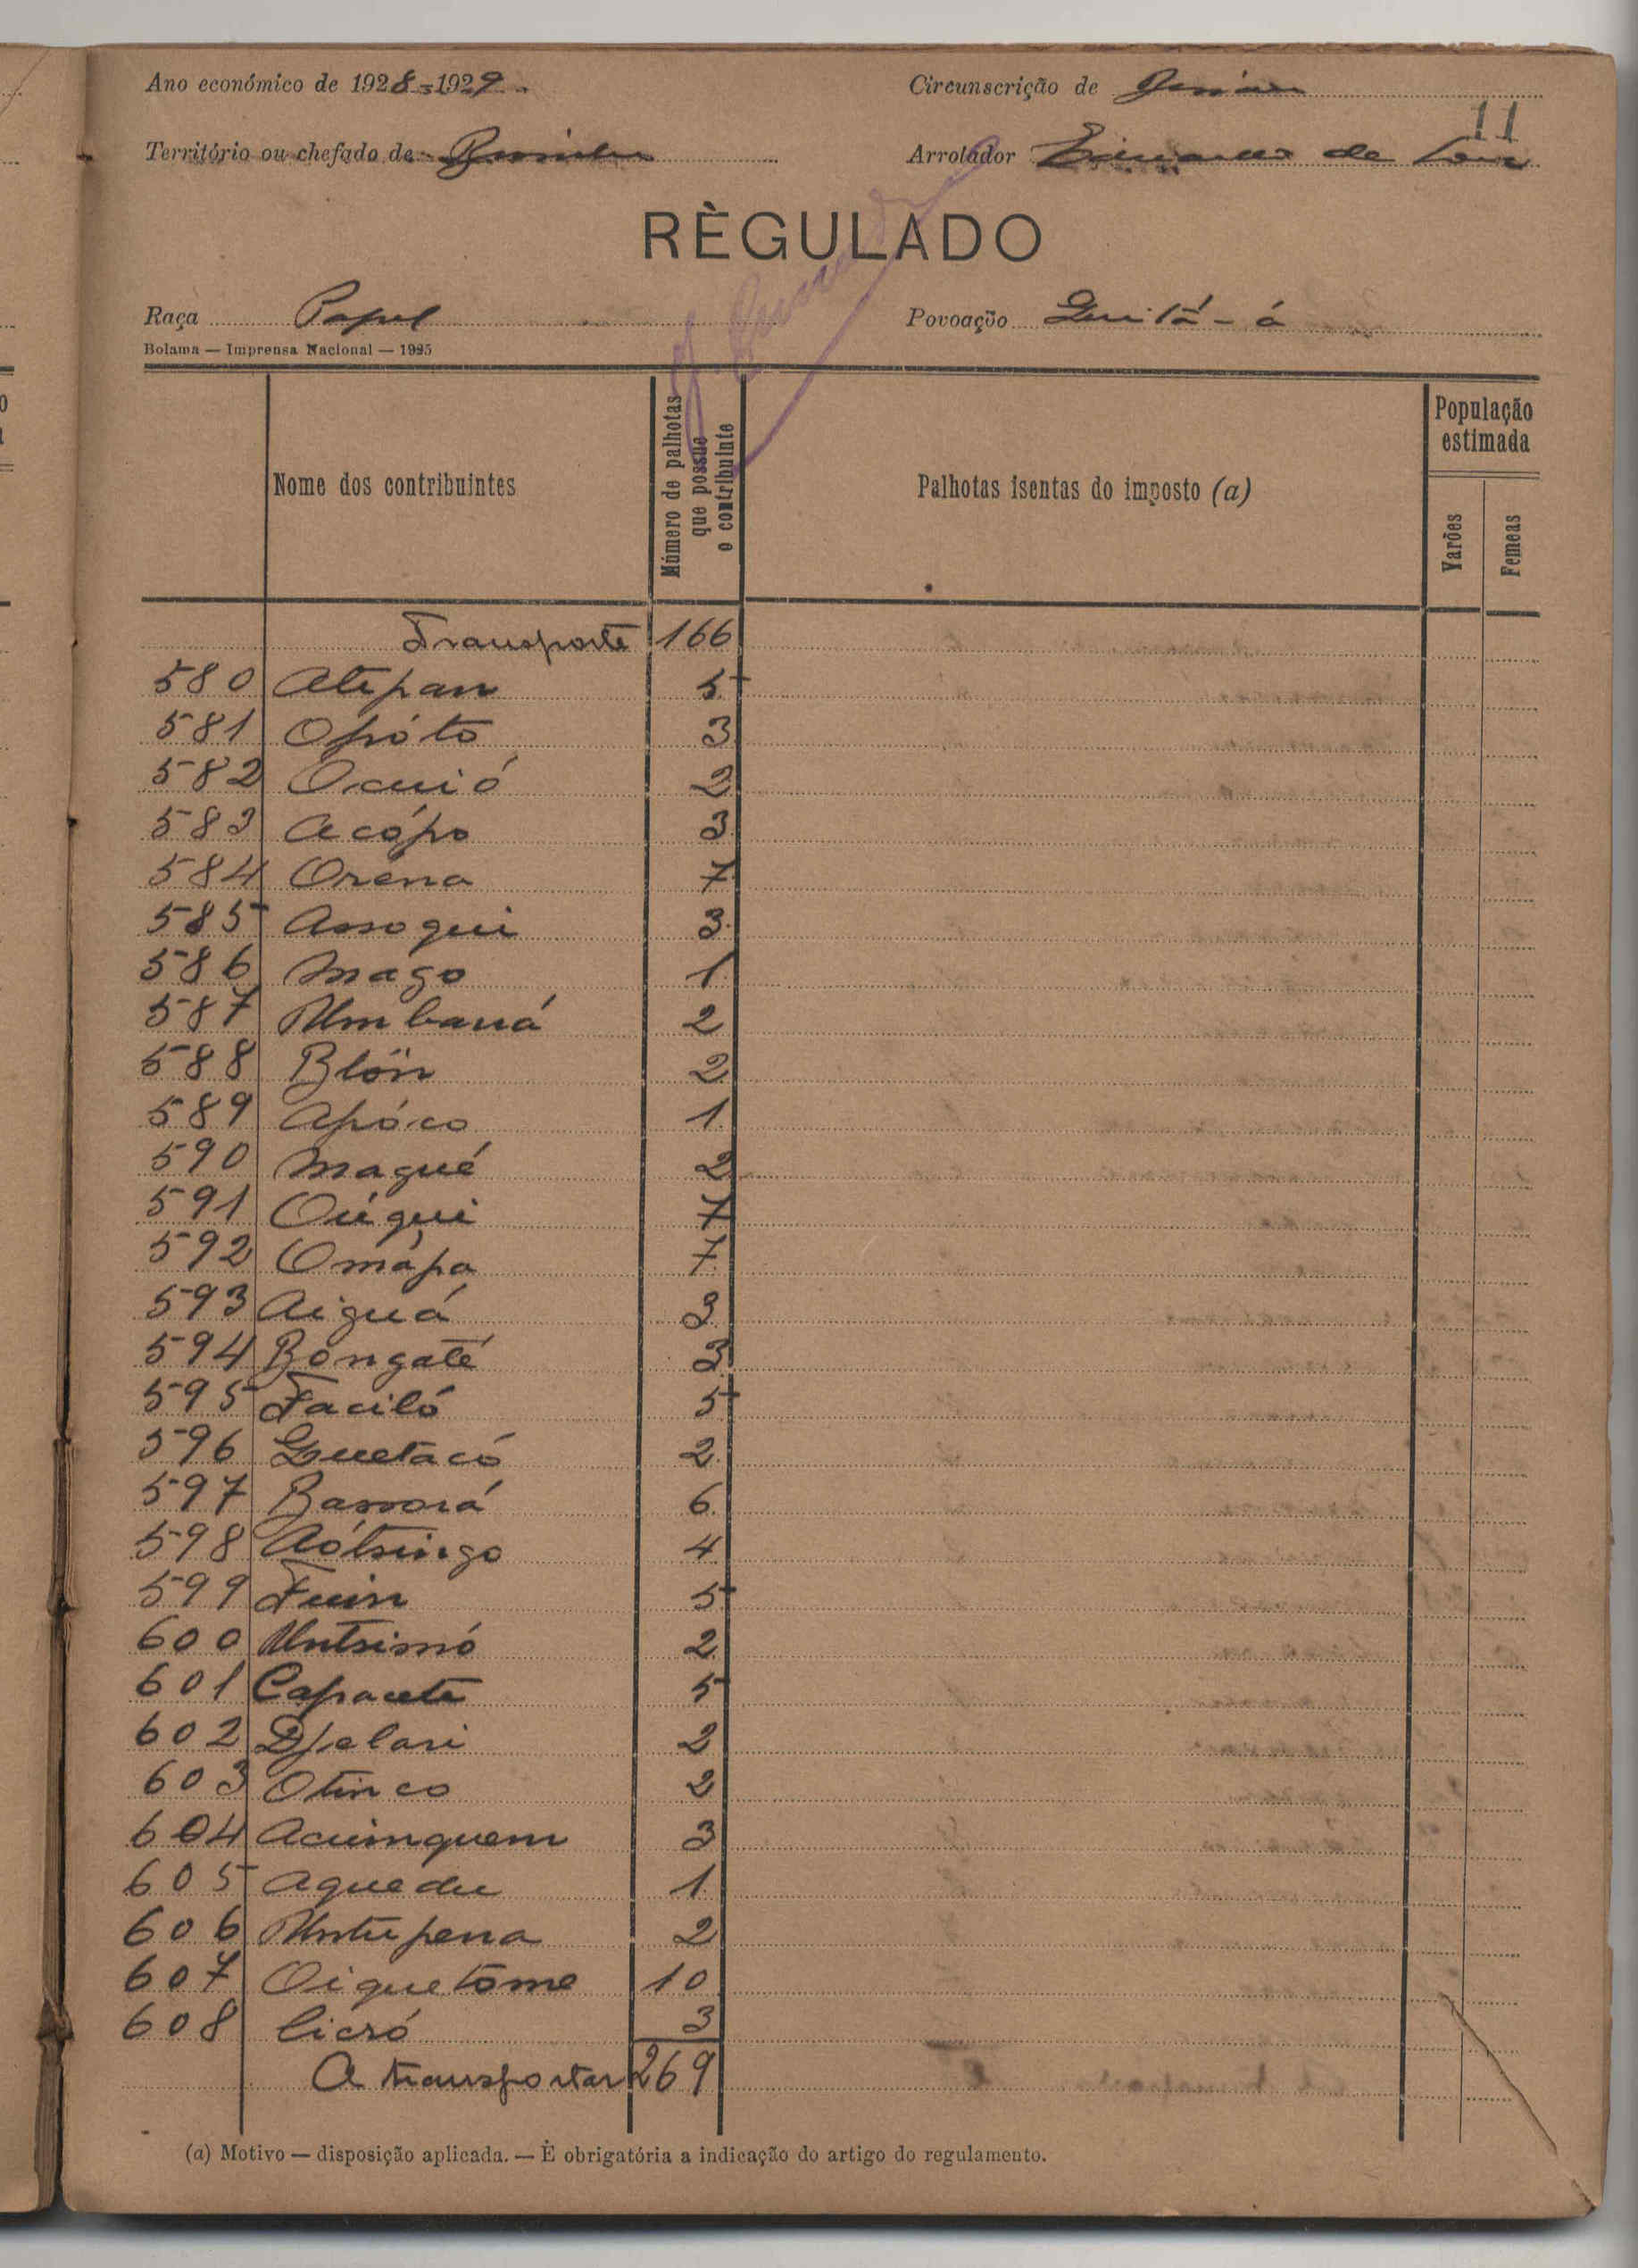 Ano económico de 1928-1929
Circunscrição de
11
Território ou chefado de
Arrolador de
RÈGULADO
Raça Papel
Povoação Quitá-á
Bolama — Imprensa Nacional — 1925
Nome dos contribuintes
Número de palhotas que possue o contribuinte
Palhotas isentas do imposto (a)
População estimada
Varões
Femeas
Transporte 166
580 Atepan 5
581 Opóto 3
582 Ocuió 2
583 Acópo 3
584 Orena 7
585 Assoqui 3
586 Mago 1
587 Umbaná 2
588 Blón 2
589 Apóco 1
590 Magué 2
591 Oúqui 7
592 Omápa 7
593 Aiguá 3
594 Bongaté 3
595 Faciló 5
596 Quetacó 2
597 Bassorá 6
598 Aótsingo 4
599 Fuin 5
600 Untsimó 2
601 Capacete 5
602 Djelani 2
603 Otinco 2
604 Acuimquem 3
605 Aquedu 1
606 Untupena 2
607 Oiquetome 10
608 Cicró 3
A transportar 269
(a) Motivo — disposição aplicada. — É obrigatória a indicação do artigo do regulamento.